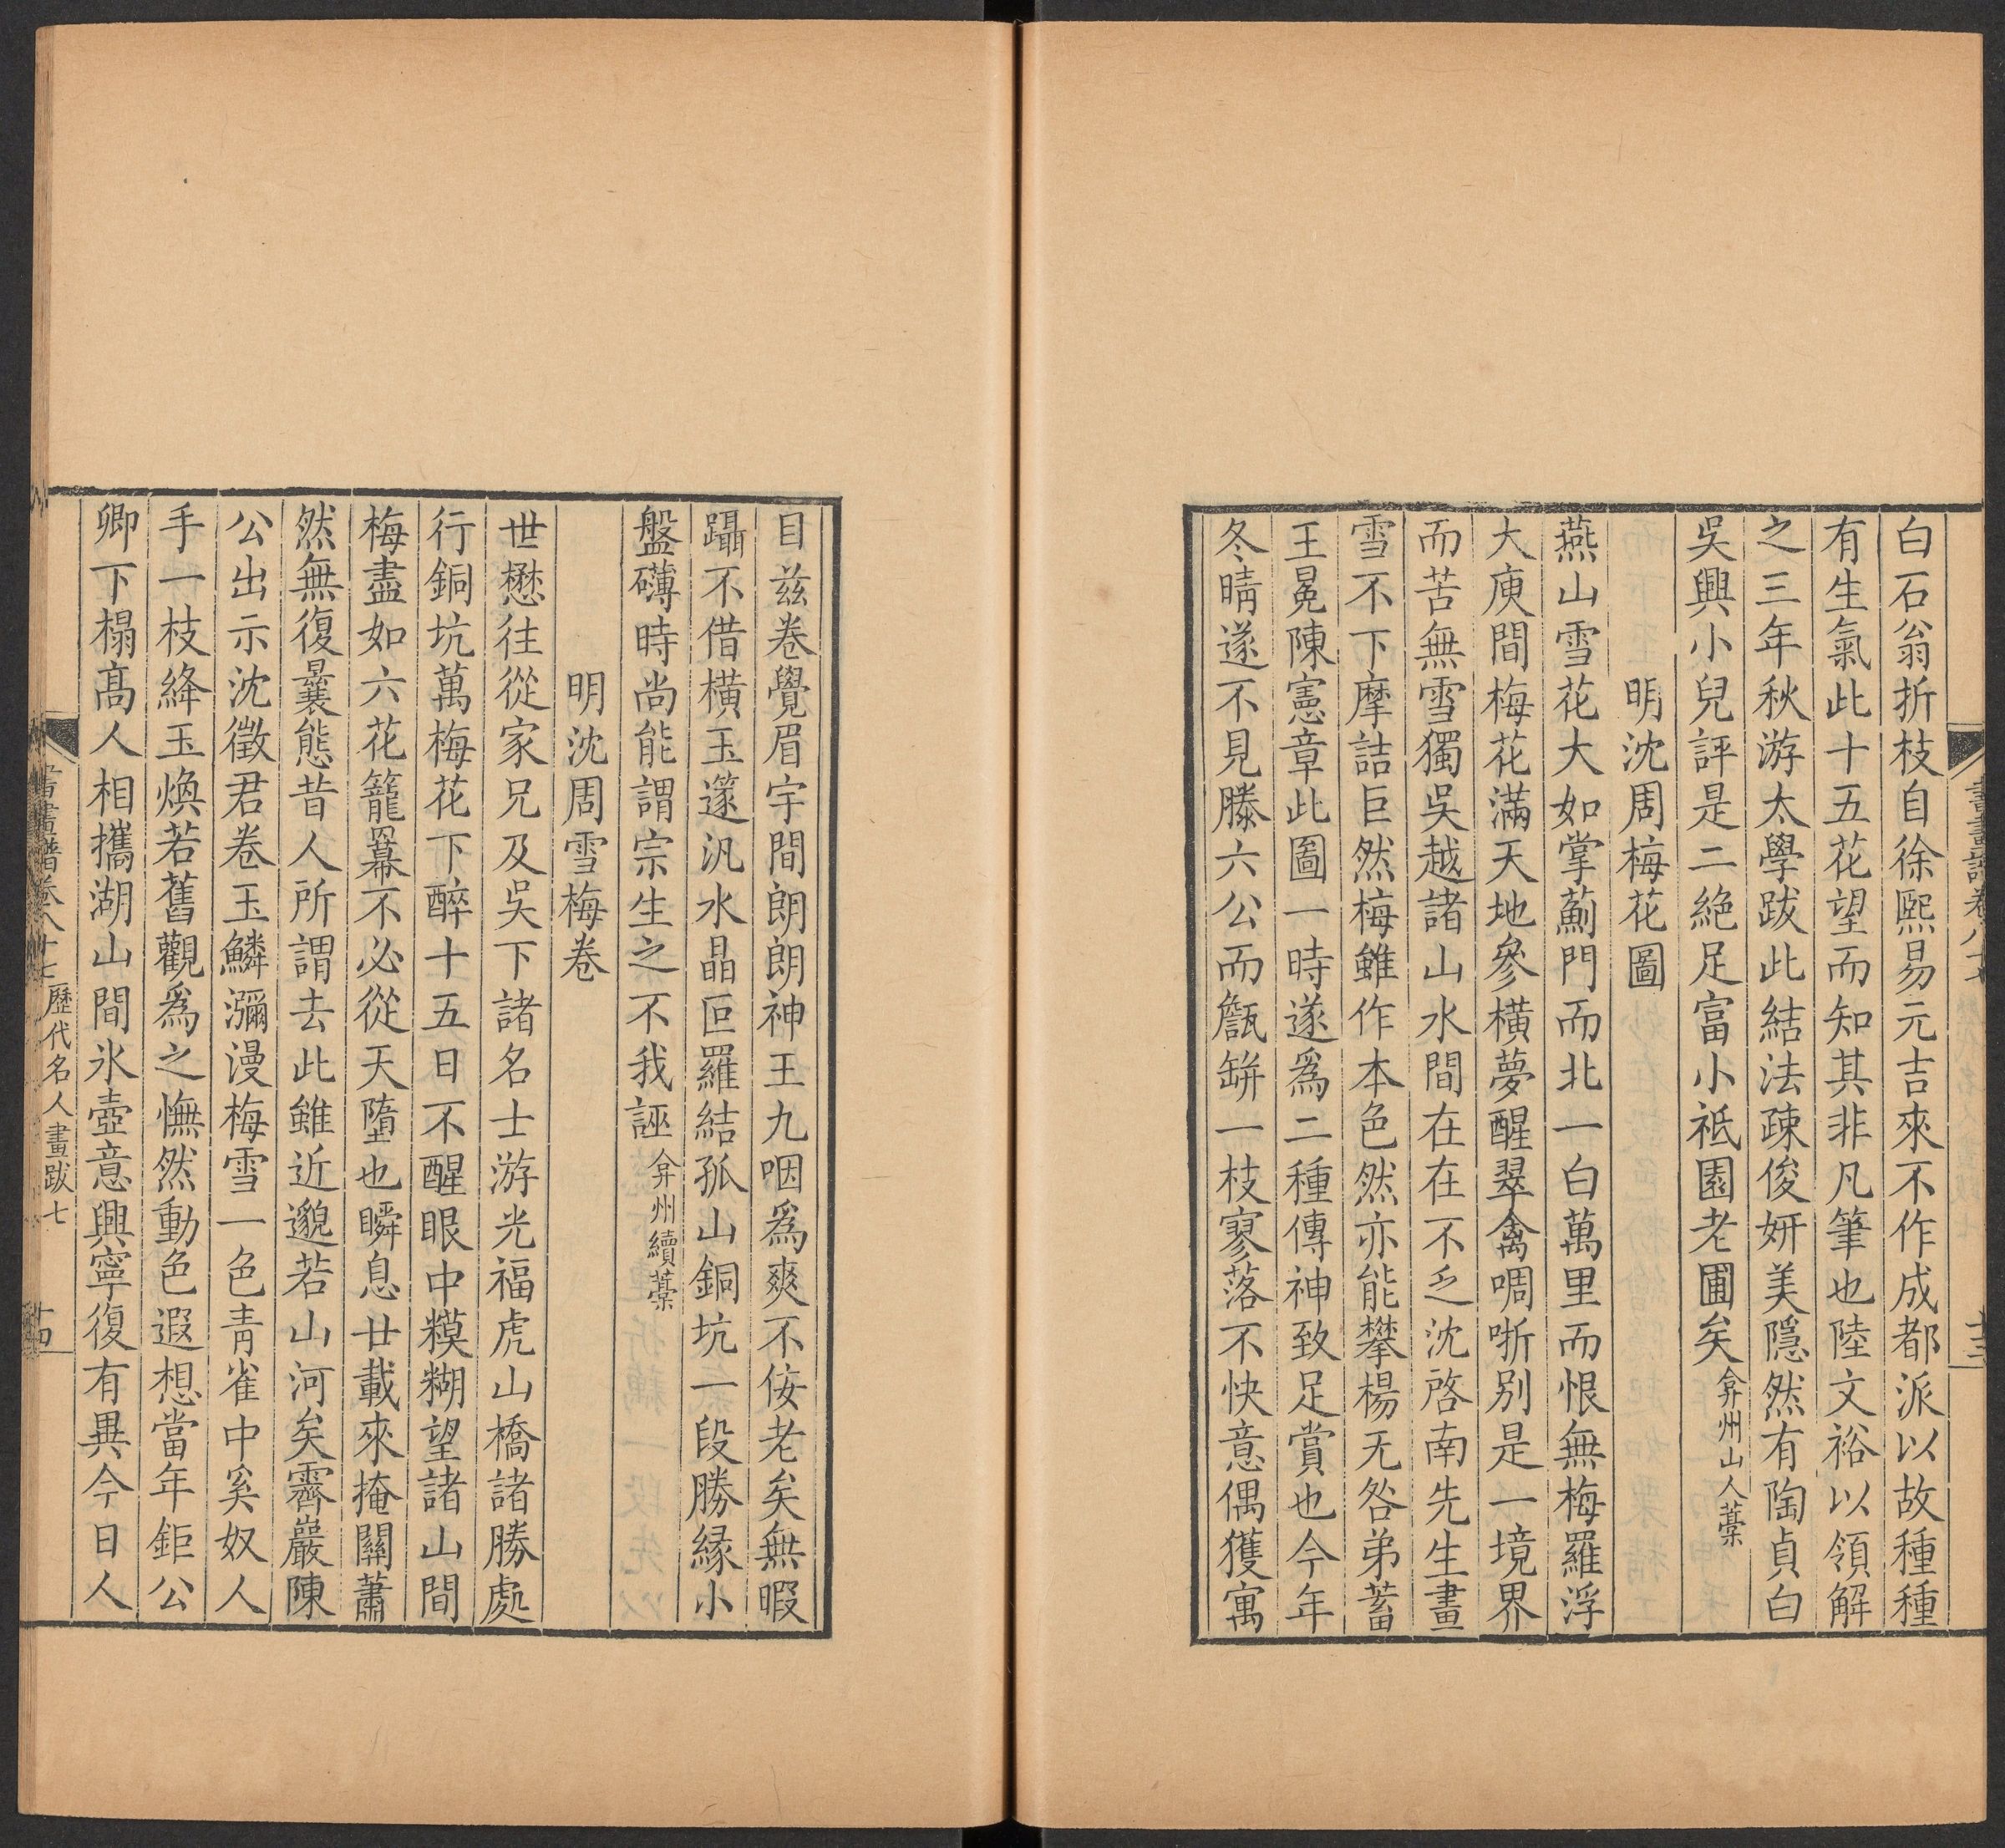 白石翁折枝自徐熙易元吉來不作成都派以故種種
有生氣此十五花望而知其非凡筆也陸文裕以領解
之三年秋游太學跋此結法疎俊妍美隱然有陶貞白
吳興小兒評是二絶足富小祗園老圃矣弇州山人藁
明沈周梅花圖
燕山雪花大如掌薊門而北一白萬里而恨無梅羅浮
大庾間梅花滿天地參橫夢醒翠禽啁哳别是一境界
而苦無雪獨吳越諸山水間在在不乏沈啓南先生畫
雪不下摩詰巨然梅雖作本色然亦能攀楊无咎弟蓄
王冕陳憲章此圖一時遂爲二種傳神致足賞也今年
冬晴遂不見滕六公而甔缾一枝寥落不快意偶獲寓
目兹卷覺眉宇間朗朗神王九咽爲爽不佞老矣無暇
躡不借橫玉籧汎水晶叵羅結孤山銅坑一段勝緣小
盤礴時尚能謂宗生之不我誣弇州續藁
明沈周雪梅卷
世懋往從家兄及吳下諸名士游光福虎山橋諸勝處
行銅坑萬梅花下醉十五日不醒眼中糢糊望諸山間
梅盡如六花籠羃不必從天墮也瞬息廿載來掩關蕭
然無復曩態昔人所謂去此雖近邈若山河矣霽巖陳
公出示沈徵君卷玉鱗瀰漫梅雪一色青雀中奚奴人
手一枝絳玉煥若舊觀爲之憮然動色遐想當年鉅公
卿下榻髙人相攜湖山間氷壺意興寧復有異今日人
書畫譜卷八十七 歷代名人畫跋七 十四